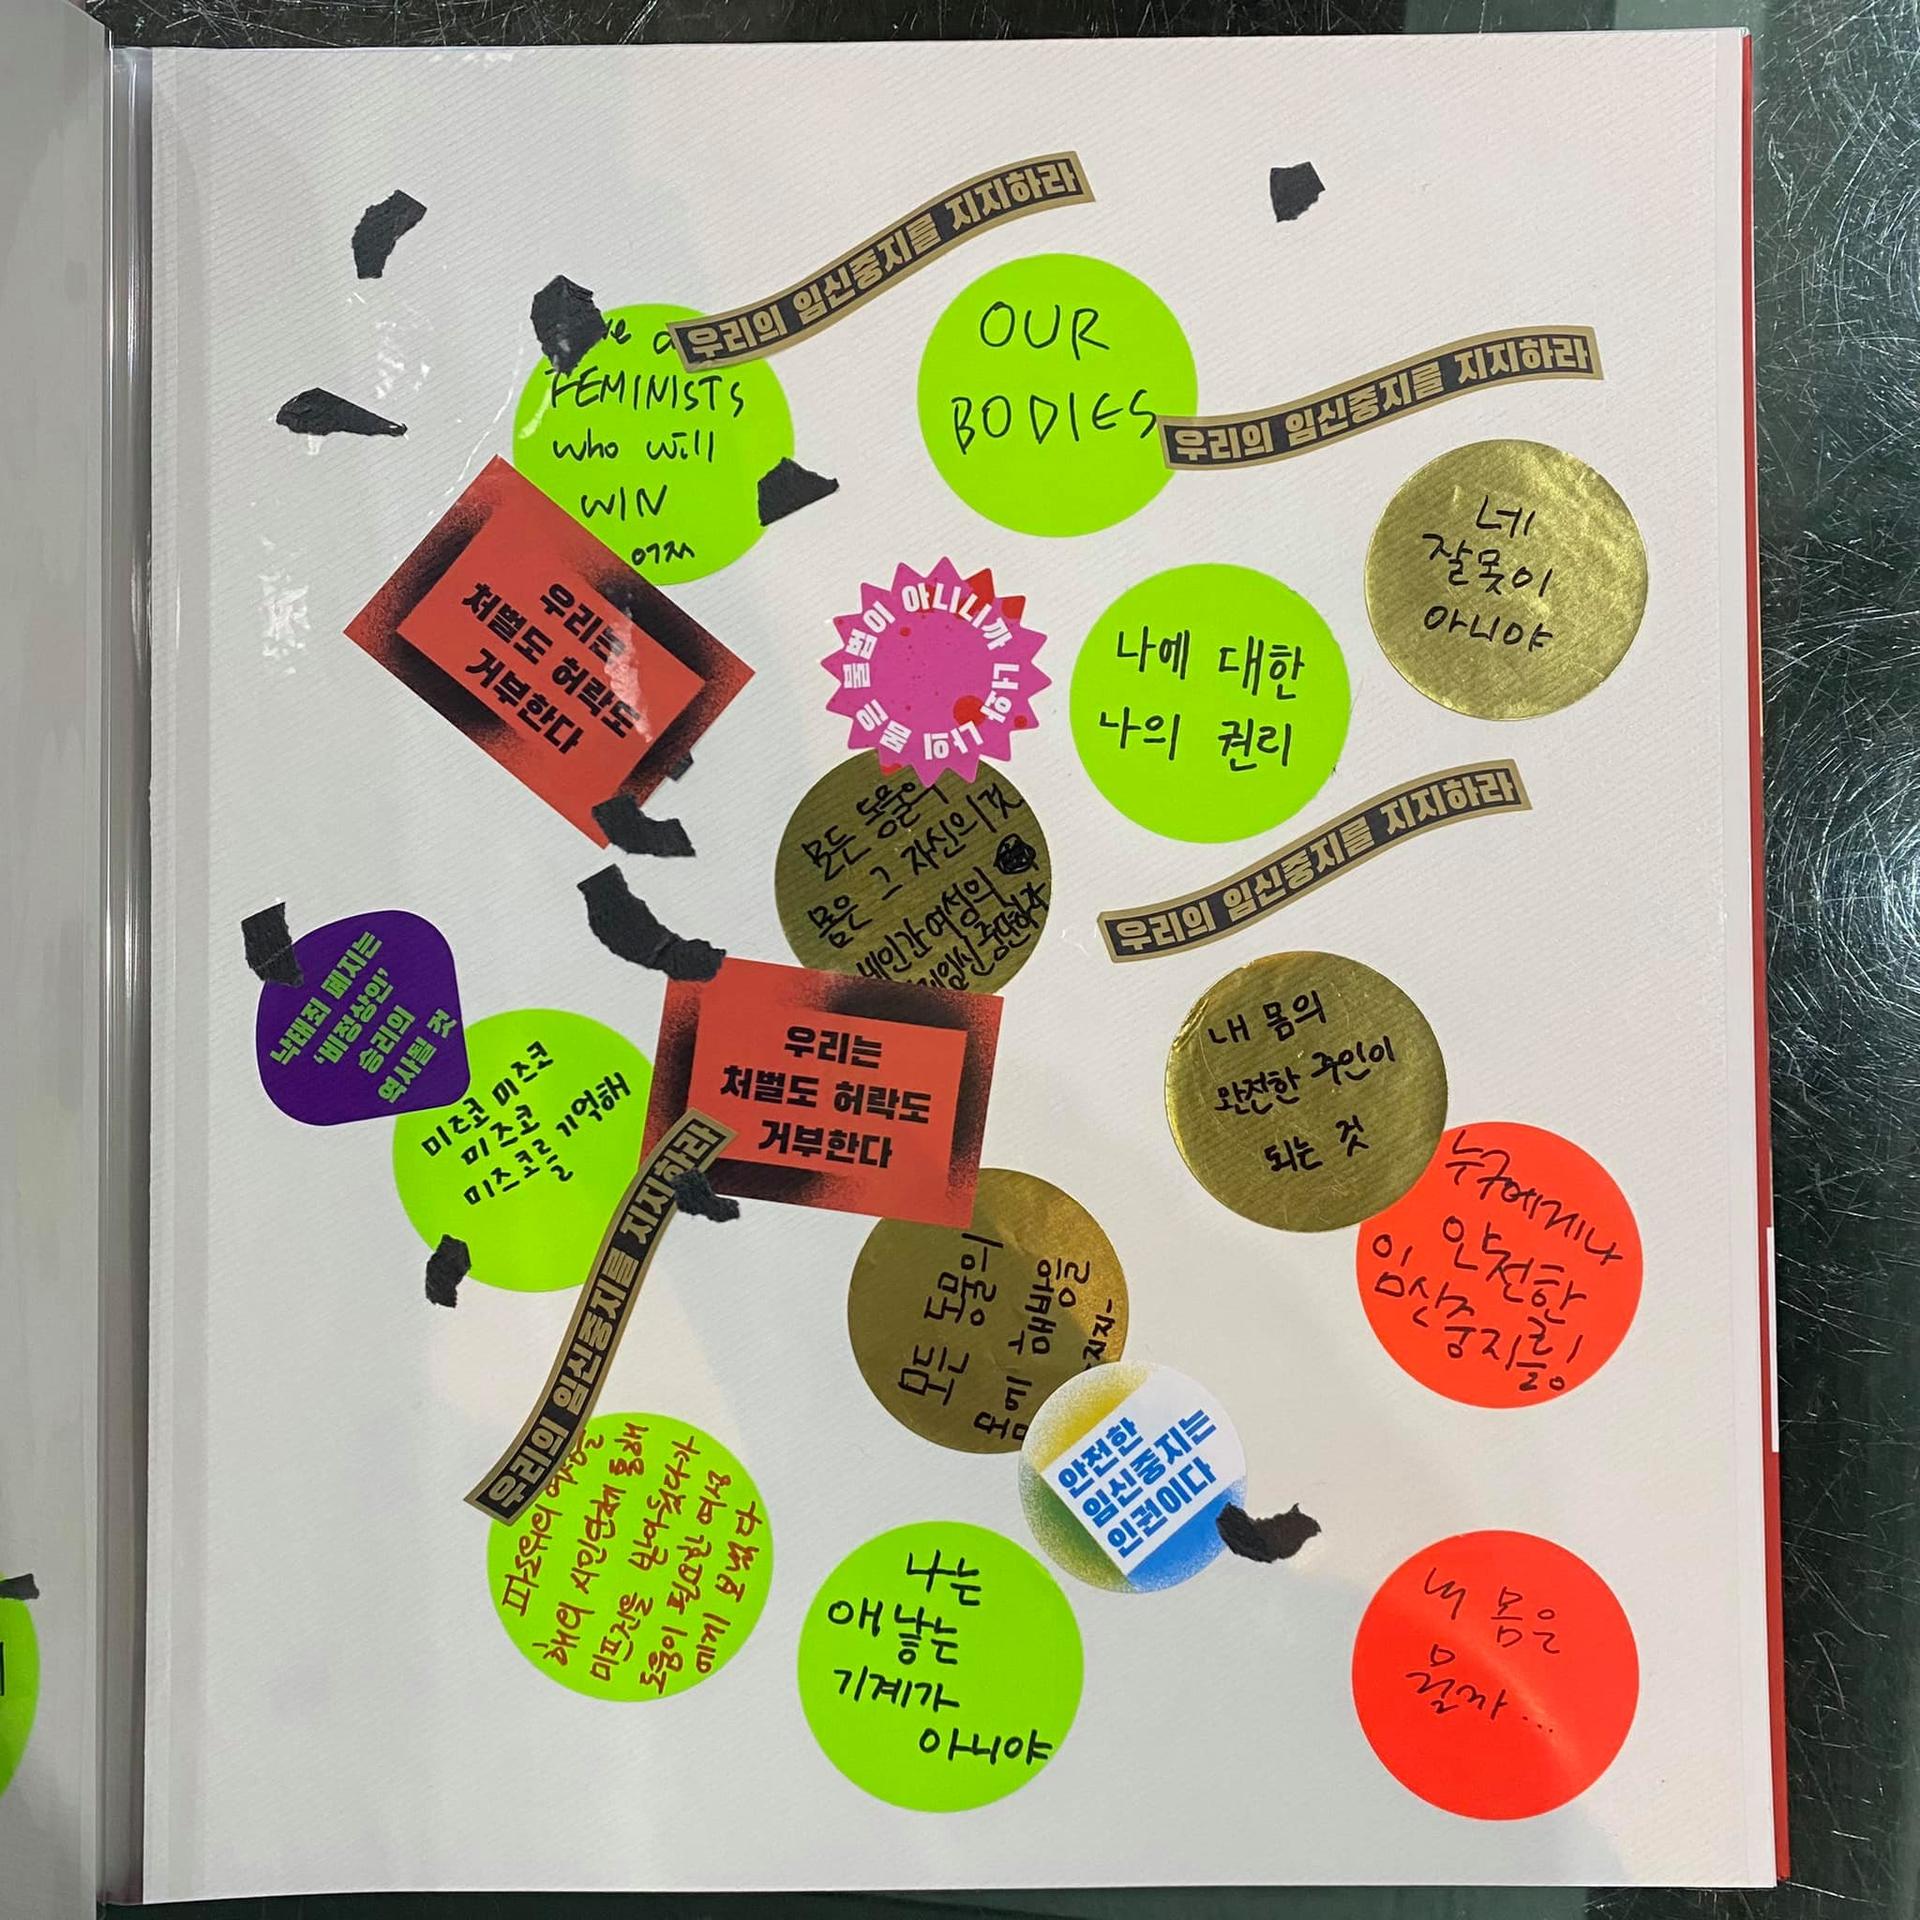 우리의 임신중지를 지지하라
FEMINISTS
who will
WIN
OUR
BODIES
우리의 임신중지를 지지하라
네
잘못이
아니야
우리는
처벌도 허락도
거부한다
불법이 아니니까 너와 나의 몸은
나에 대한
나의 권리
모든 동물의
몸은 그 자신의 것
여성의
우리의 임신중지를 지지하라
낙태죄 폐지는
'비정상인'
승리의
역사될 것
미즈코 미즈코
미즈코
미즈코를 기억해
우리는
처벌도 허락도
거부한다
내 몸의
완전한 주인이
되는 것
누구에게나
안전한
임신중지를!
우리의 임신중지를 지지하라
모든 동물의
몸에 해방을
안전한
임신중지는
인권이다
파도위의
해외 시민단체 통해
미프진을 받아왔다가
도움이 필요한 여성
에게 보냈다
나는
애 낳는
기계가
아니야
내 몸은
뭘까...